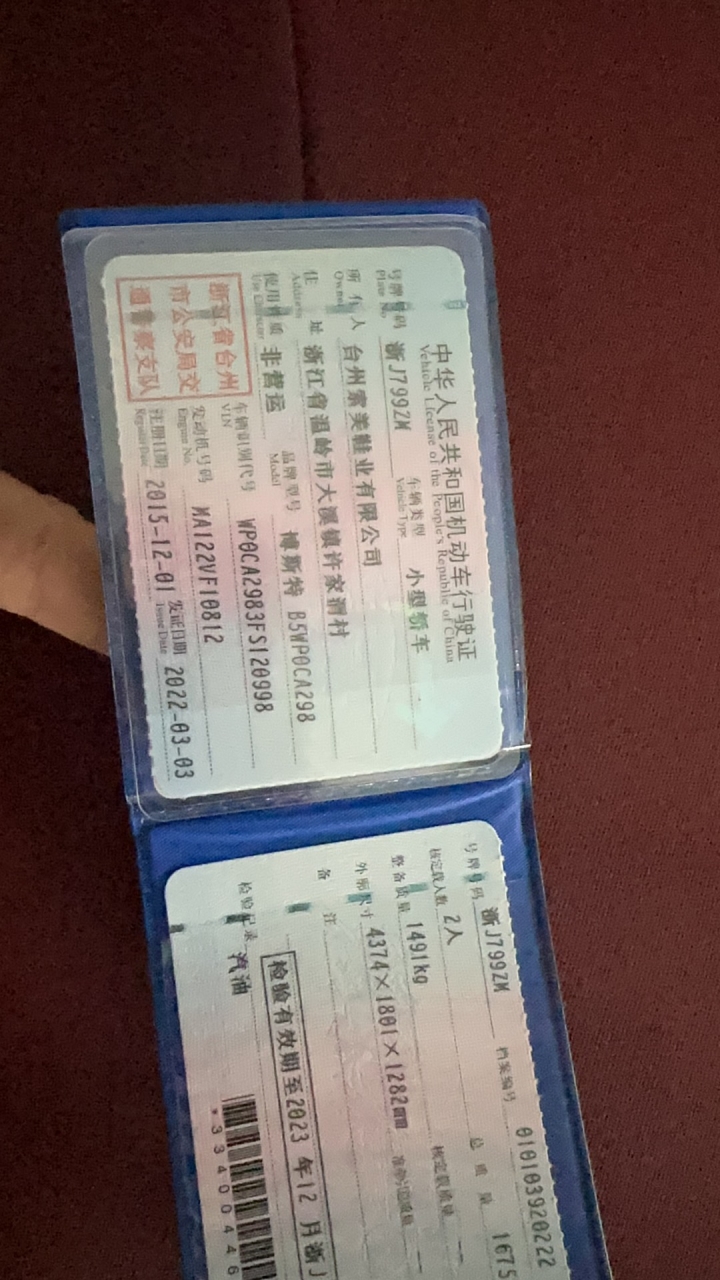 中华人民共和国机动车行驶证
Vehicle License of the People's Republic of China
号牌号码 浙J799ZM 车辆类型 小型轿车
Plate No. Vehicle Type
所有人 台州索美鞋业有限公司
Owner
住址 浙江省温岭市大溪镇许家渭村
Address
使用性质 非营运 品牌型号 博斯特 B5WP0CA298
Use Character Model
浙江省台州
市公安局交
通警察支队
车辆识别代号 WP0CA2983FS120998
VIN
发动机号码 MA122VF10812
Engine No.
注册日期 2015-12-01 发证日期 2022-03-03
Register Date Issue Date
号牌号码 浙J799ZM 档案编号 010103920222
核定载人数 2人 总质量 1675
整备质量 1491kg 核定载质量 --
外廓尺寸 4374×1801×1282mm 准牵引总质量 --
备注
检验有效期至2023年12月浙J
检验记录 汽油
*3340046